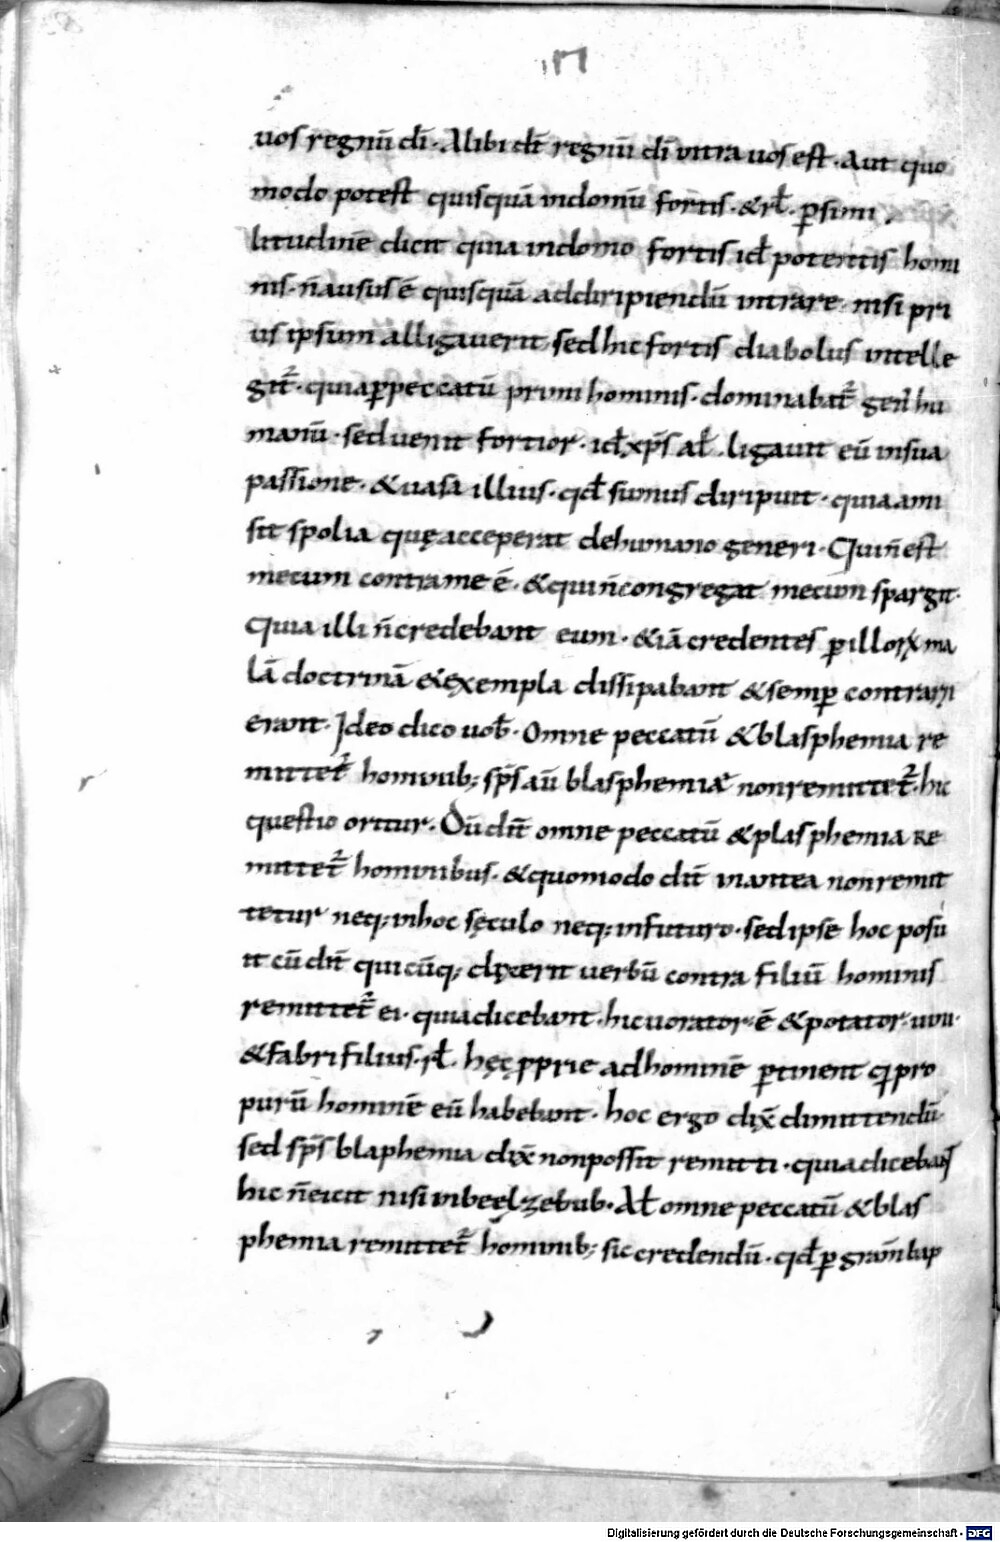 uos regnū dī. Alibi dr̄ regnū dī intra uos est. Aut quo
modo potest quisquā indomū fortis. &rł. ꝑsimi
litudinē dicit quia indomo fortis id potentis homi
nis. n̄ ausus ē quisquā addiripiendū intrare. nisi pri
us ipsum alligauerit, sed hic fortis diabolus intelle
git᷑. quia ꝑpeccatū primi hominis. dominabat᷑ geñ hu
manū. sed uenit fortior. id xp̄s ał. ligauit eū insua
passione. & uasa illius. qđ sumus diripuit. quia ami
sit spolia quę acceperat dehumano generi. Qui n̄ est
mecum contra me ē. & qui n̄ congregat mecum spargit.
Quia illi n̄ credebant eum. & iā credentes ꝑ illoꝝ ma
lā doctrinā & exempla dissipabant & semꝑ contrarii
erant. Ideo dico uob̄. Omne peccatū & blasphemia re
mittet᷑ hominib; sp̄s aū blasphemiae non remittet᷑. hic
questio oritur. Dū dit̄ omne peccatū & plasphemia re
mittet᷑ hominibus. & quomodo dit̄ inantea non remit
tetur neq; inhoc sęculo neq; infuturo. sed ipse hoc posu
it cū dit̄ quicūq; dixerit uerbū contra filiū hominis
remittet᷑ ei. quia dicebant. hic uorator ē & potator uini.
& fabri filius. rł. hęc ꝓprie ad hominē ꝑtinent qi pro
purū hominē eū habebant. hoc ergo dix̄ dimittendū.
sed sp̄s blaphemia dix̄ non possit remitti. quia dicebant
hic n̄ eicit nisi inbeęlzebub. Ał omne peccatū & blas
phemia remittet᷑ hominib; sic credendū. qđ ꝑ gram̄ bap
Digitalisierung gefördert durch die Deutsche Forschungsgemeinschaft - DFG